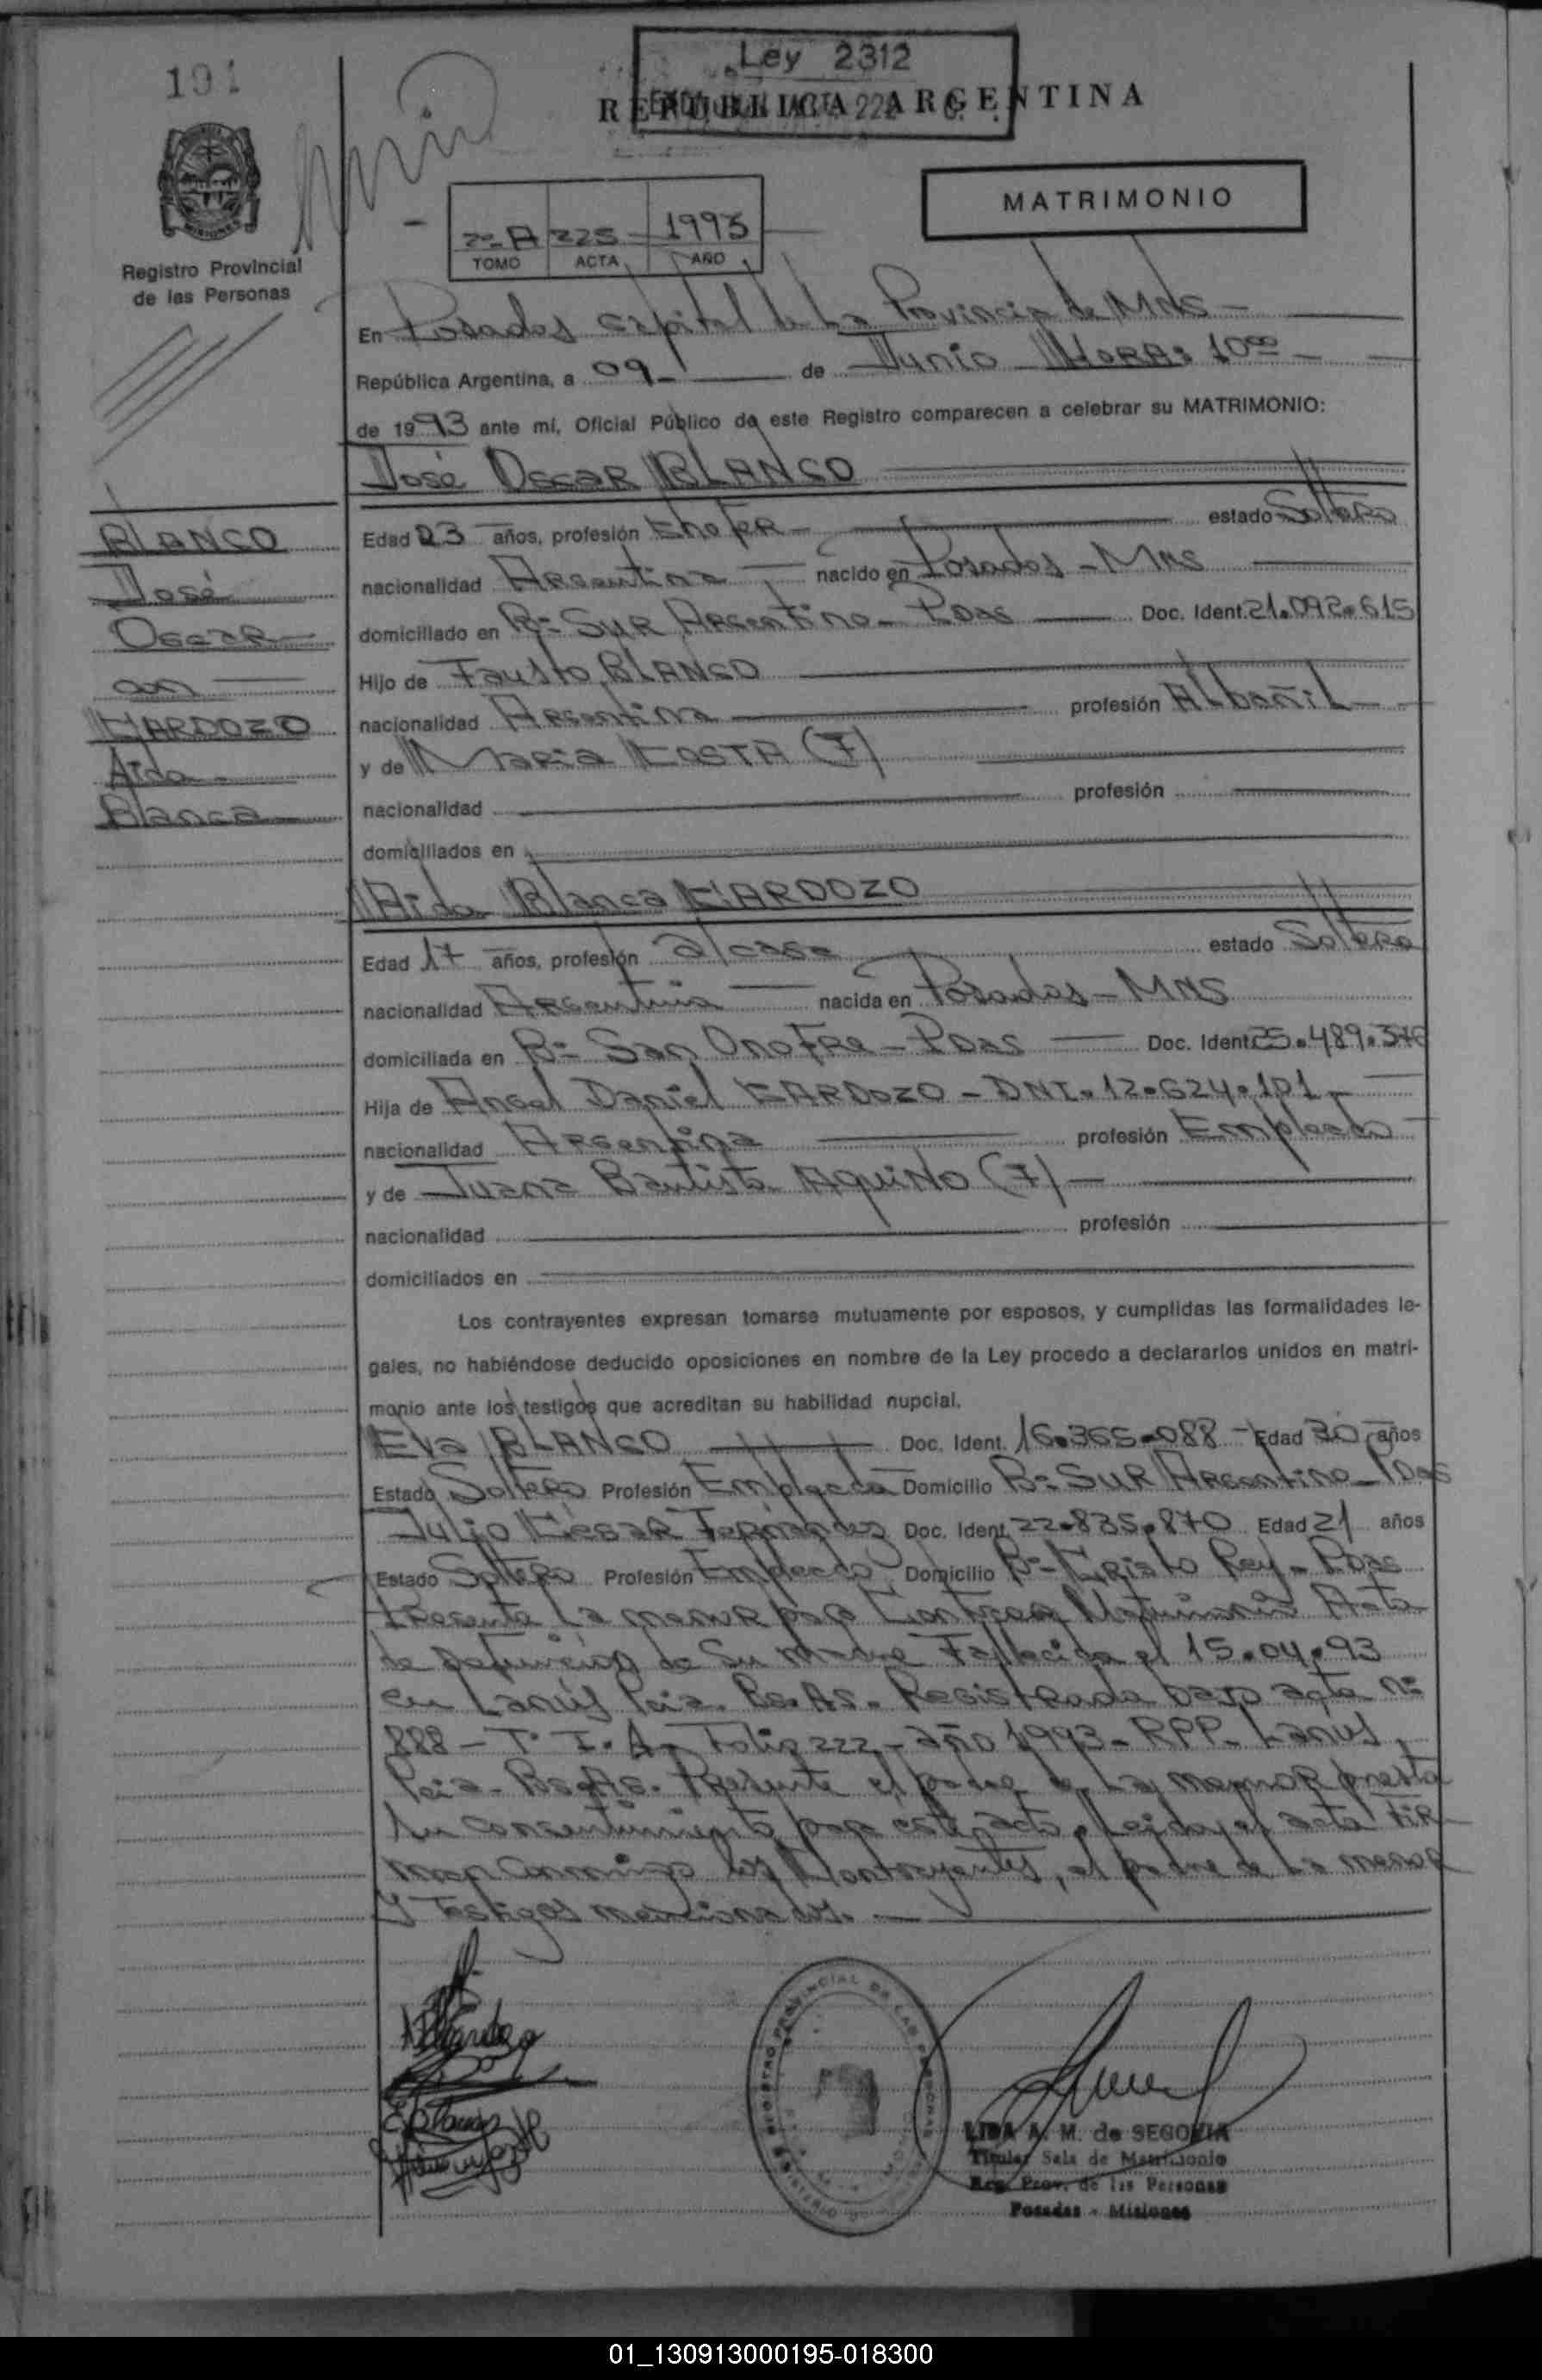 191
Ley 2312
REPUBLICA ARGENTINA
MATRIMONIO
2º A 225 1993
TOMO ACTA AÑO
Registro Provincial
de las Personas
En Posadas capital de La Provincia de Mns
República Argentina, a 09 de Junio Hora: 10⁰⁰
de 1993 ante mí, Oficial Público de este Registro comparecen a celebrar su MATRIMONIO:
José Oscar BLANCO
Edad 23 años, profesión Chofer estado Soltero
nacionalidad Argentina nacido en Posadas - Mns
domiciliado en Bº Sur Argentino - Pdas Doc. Ident. 21.092.615
Hijo de Fausto BLANCO
nacionalidad Argentina profesión Albañil
y de Maria COSTA (F)
nacionalidad profesión
domiciliados en
BLANCO
José
Oscar
con
CARDOZO
Aida
Blanca
Aida Blanca CARDOZO
Edad 17 años, profesión a/casa estado Soltera
nacionalidad Argentina nacida en Posadas - Mns
domiciliada en Bº San Onofre - Pdas Doc. Ident. 25.489.376
Hija de Angel Daniel CARDOZO - DNI. 12.624.101
nacionalidad Argentina profesión Empleado
y de Juana Bautista Aquino (F)
nacionalidad profesión
domiciliados en
Los contrayentes expresan tomarse mutuamente por esposos, y cumplidas las formalidades le-
gales, no habiéndose deducido oposiciones en nombre de la Ley procedo a declararlos unidos en matri-
monio ante los testigos que acreditan su habilidad nupcial.
Eva BLANCO Doc. Ident. 16.365.088 - Edad 30 años
Estado Soltera Profesión Empleada Domicilio Bº Sur Argentino - Pdas
Julio Cesar Fernandez Doc. Ident. 22.835.870 Edad 21 años
Estado Soltero Profesión Empleado Domicilio Bº Cristo Rey - Pdas
Presenta La menor para Contraer Matrimonio Acta
de defunción de Su madre Fallecida el 15.04.93
en Lanús Pcia. Bs.As. Registrada bajo acta nº
888 - Tº I. A - Folio 222 - año 1993 - RPP - Lanus
Pcia. Bs.As. Presente el padre de La menor presta
Su consentimiento para este acto. Leida el acta Fir
man conmigo los Contrayentes, el padre de La menor
y Testigos mencionados.
REGISTRO PROVINCIAL DE LAS PERSONAS
LIDA A. M. de SEGOVIA
Titular Sala de Matrimonio
Reg. Prov. de las Personas
Posadas - Misiones
01_130913000195-018300